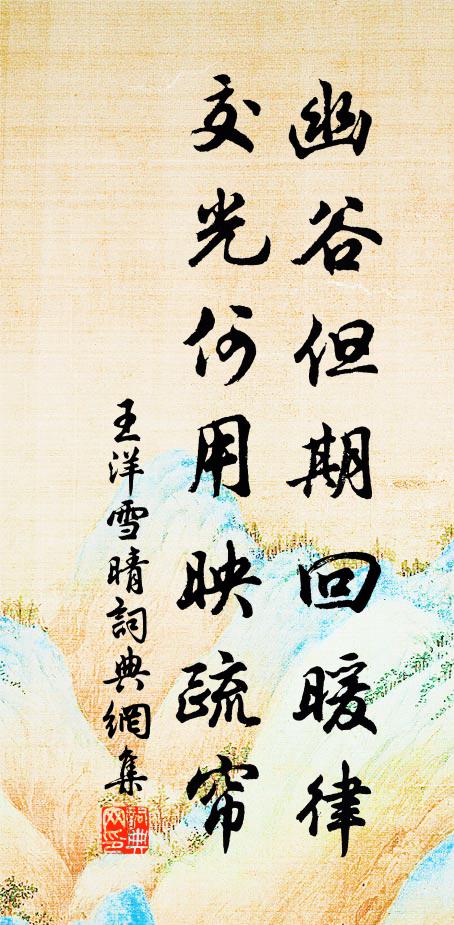 幽谷但期回暖律
交光何用映疏帘
王洋雪晴詞典網集
詞典